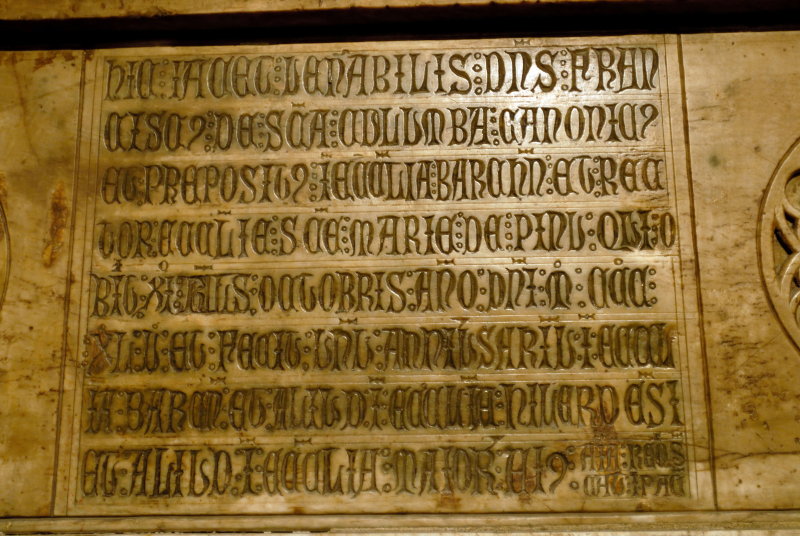 HIC : IACET : VENABILIS : DNS : FRAN
CISCꝰ : DE : SCA : COLUMBA : CANONICꝰ
ET : PREPOSITꝰ : I ECCLIA : BARCHN : ET : REC
TOR : ECCLIE : SCE : MARIE : DE : PINU : QUI : O
BIIT : XI : OCTOBRIS : ANO : DNI : M : CCC :
XL : V : ET : FECIT : UNU : ANNIVSARIU : I : ECCL
IA : BARCN : ET : ALIUD : I : ECCLIE : HILERDESI
ET : ALIUD : I : ECCLIA : MAIOR : AIA : REQS
CAT : I PAC